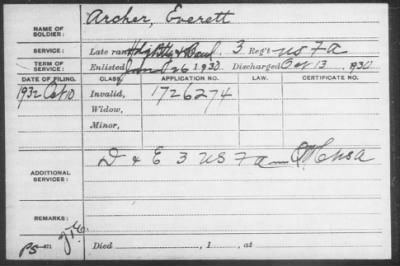 Archer, Everett
NAME OF
SOLDIER:
SERVICE: Late rank Hdqrs Btry & 3 Reg't US FA
TERM OF
SERVICE: Enlisted 26, 1930. Discharged Oct 13, 1930
DATE OF FILING. CLASS. APPLICATION NO. LAW. CERTIFICATE NO.
1932 Oct 10 Invalid, 1726274
Widow,
Minor,
D & E 3 US FA
ADDITIONAL
SERVICES:
REMARKS:
Died , 1 , at